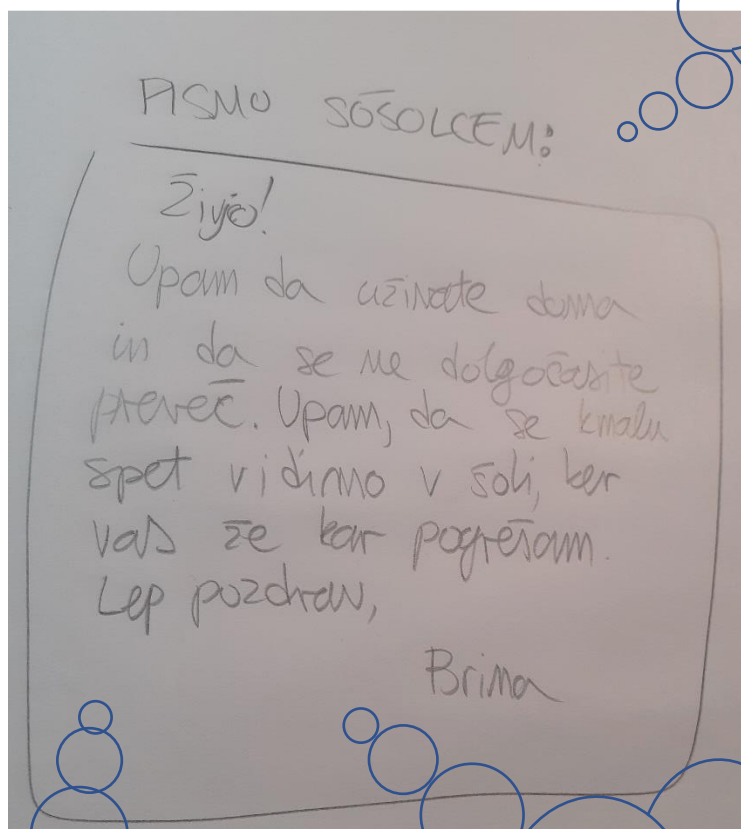 PISMO SOŠOLCEM:
Živjo!
Upam da uživate doma
in da se ne dolgočasite
preveč. Upam, da se kmalu
spet vidimo v šoli, ker
vas že kar pogrešam.
Lep pozdrav,
Brina